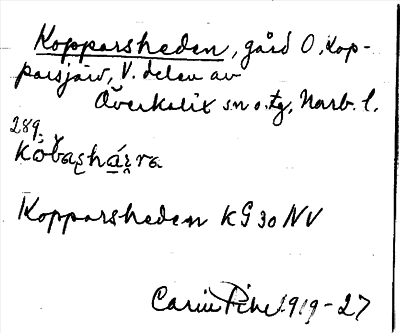 Kopparsheden, gård O. Kop-
parsjärv, V. delen av
Överkalix sn o. tg, Norb. l.
289.
Kopparsheden KG 30 NV
Carin Pihl 1919-27